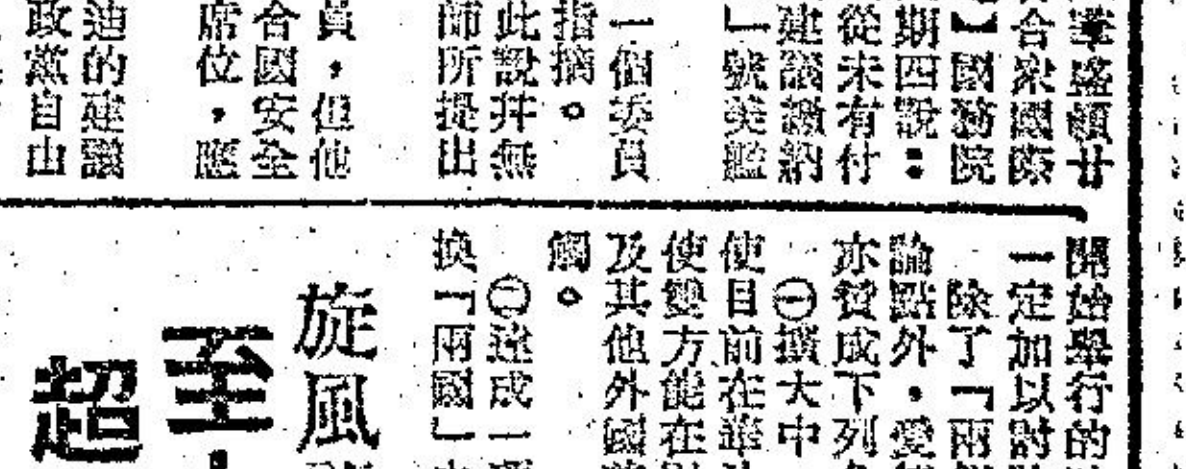 華盛頓廿
合衆國際
】國務院
期四說：
從未有付
建議繳納
」號美艦
一個委員
指摘。
此說并無
師所提出
員，但他
合國安全
席位，應
迪的建議
政黨自由
開始舉行的
一定加以討
除了「兩個
論點外，愛
亦贊成下列
㊀擴大中
使目前在華
使雙方能在
及其他外國
觸。
㊁達成一
換「兩國」
旋風
至
超